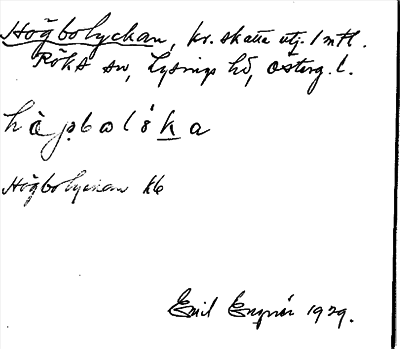 Högbolyckan, kr. skatte utj. 1 mtl.
Röks sn, Lysings hd, Österg. l.
Högbolyckan kb
Emil 1929.